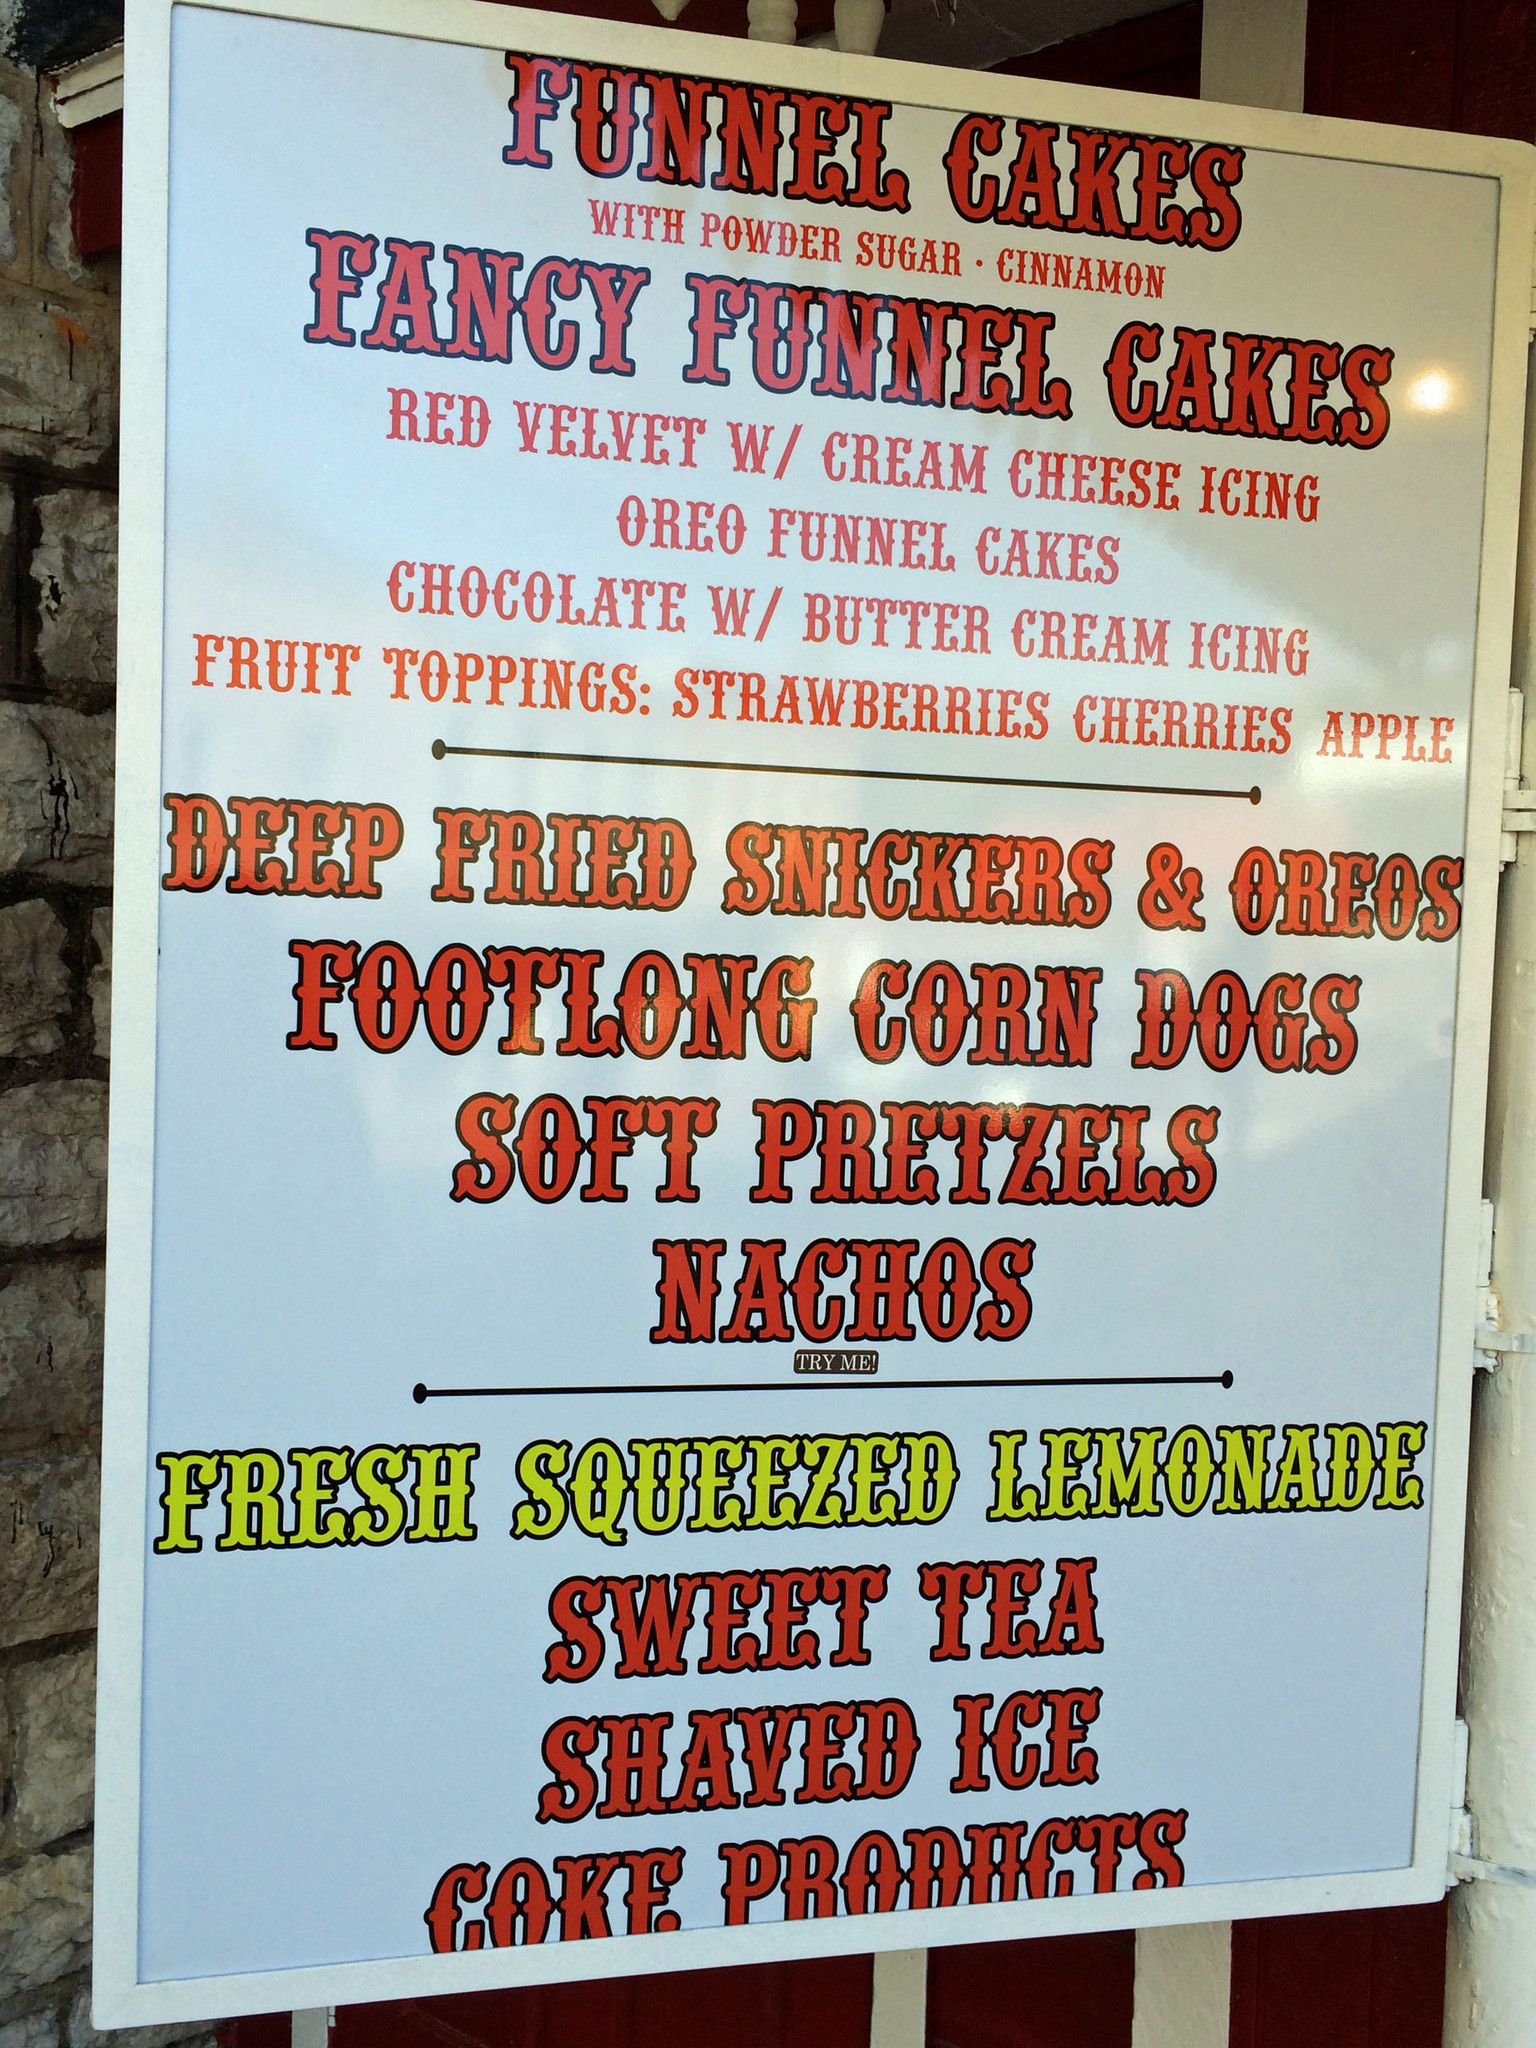 FUNNEL CAKES
WITH POWDER SUGAR · CINNAMON
FANCY FUNNEL CAKES
RED VELVET W/ CREAM CHEESE ICING
OREO FUNNEL CAKES
CHOCOLATE W/ BUTTER CREAM ICING
FRUIT TOPPINGS: STRAWBERRIES CHERRIES APPLE
DEEP FRIED SNICKERS & OREOS
FOOTLONG CORN DOGS
SOFT PRETZELS
NACHOS
TRY ME!
FRESH SQUEEZED LEMONADE
SWEET TEA
SHAVED ICE
COKE PRODUCTS